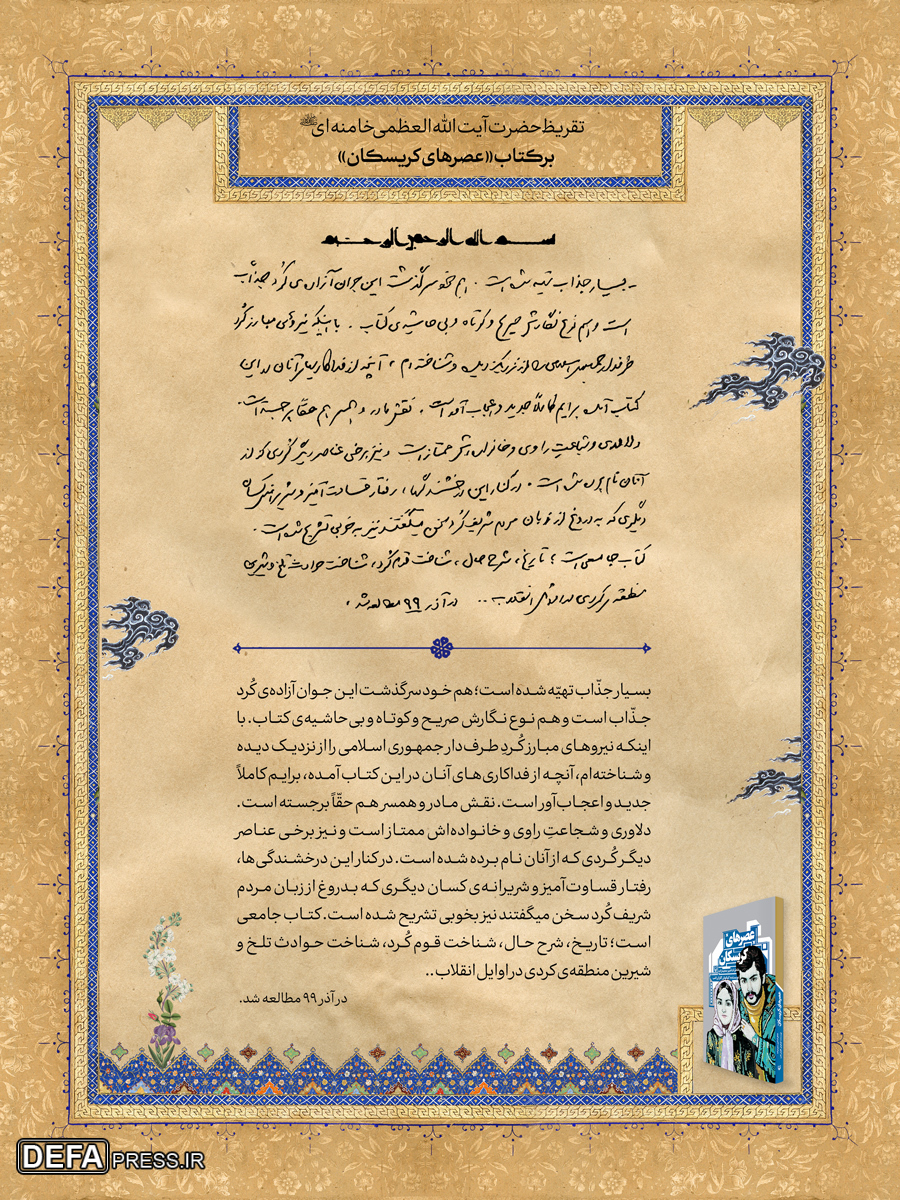 تقریظ حضرت آیت الله العظمی خامنه ای
بر کتاب «عصرهای کریسکان»
بسم الله الرحمن الرحیم
ـ بسیار جذاب تهیه شده است. هم خود سرگذشت این جوان آزاده‌ی کُرد جذّاب
است و هم نوع نگارش صریح و کوتاه و بی حاشیه‌ی کتاب. با اینکه نیروهای مبارز کُرد
طرفدار جمهوری اسلامی را از نزدیک دیده و شناخته ام، آنچه از فداکاریهای آنان در این
کتاب آمده برایم کاملاً جدید و اعجاب آور است. نقش مادر و همسر هم حقّاً برجسته است.
دلاوری و شجاعت راوی و خانواده اش ممتاز است و نیز برخی عناصر دیگر کُردی که از
آنان نام برده شده است. در کنار این درخشندگیها، رفتار قساوت آمیز و شریرانه‌ی کسان
دیگری که به دروغ از زبان مردم شریف کُرد سخن میگفتند نیز به خوبی تشریح شده است.
کتاب جامعی است؛ تاریخ، شرح حال، شناخت قوم کُرد، شناخت حوادث تلخ و شیرین
منطقه‌ی کردی در اوایل انقلاب.. در آذر ۹۹ مطالعه شد.
بسیار جذّاب تهیّه شده است؛ هم خود سرگذشت این جوان آزاده‌ی کُرد
جذّاب است و هم نوع نگارش صریح و کوتاه و بی حاشیه‌ی کتاب. با
اینکه نیروهای مبارز کُردِ طرف‌دار جمهوری اسلامی را از نزدیک دیده
و شناخته‌ام، آنچه از فداکاری‌های آنان در این کتاب آمده، برایم کاملاً
جدید و اعجاب‌آور است. نقش مادر و همسر هم حقّاً برجسته است.
دلاوری و شجاعتِ راوی و خانواده‌اش ممتاز است و نیز برخی عناصر
دیگر کُردی که از آنان نام برده شده است. در کنار این درخشندگی‌ها،
رفتار قساوت‌آمیز و شریرانه‌ی کسان دیگری که بدروغ از زبان مردم
شریف کُرد سخن میگفتند نیز بخوبی تشریح شده است. کتاب جامعی
است؛ تاریخ، شرح حال، شناخت قوم کُرد، شناخت حوادث تلخ و
شیرین منطقه‌ی کردی در اوایل انقلاب..
در آذر ۹۹ مطالعه شد.
عصرهای
کریسکان
DEFA PRESS.IR